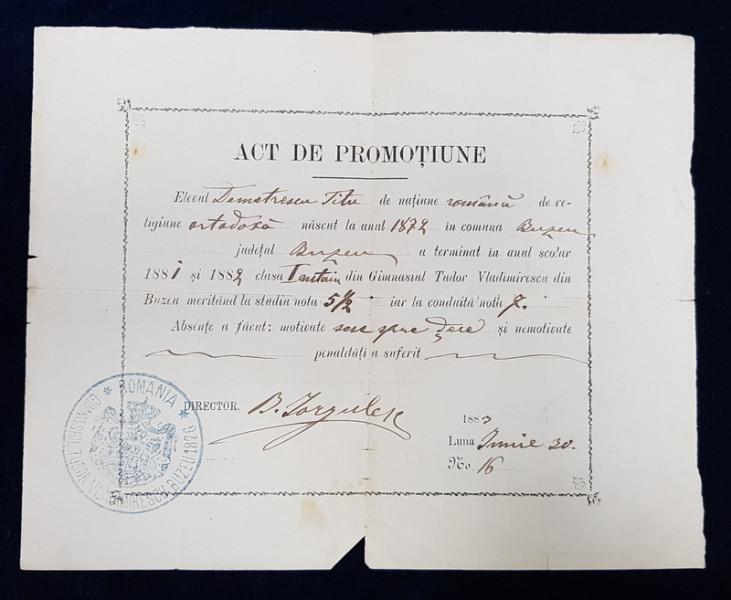 ACT DE PROMOȚIUNE
Elevul Demetrescu Titu de națiune română de re-
ligiune ortodoxă născut la anul 1872 în comuna Buzeu
județul Buzeu a terminat în anul școlar
1881 și 1882 clasa I antâia din Gimnasiul Tudor Vladimirescu din
Buzeu meritând la studiu nota 5 1/2 iar la conduită nota 7.
Absențe a făcut: motivate șece și nemotivate
penalități a suferit
DIRECTOR. B. Iorgulescu
188
Luna Iunie 30.
No. 16
ROMANIA
GIMNASIUL TUDOR VLADIMIRESCU BUZEU 1876